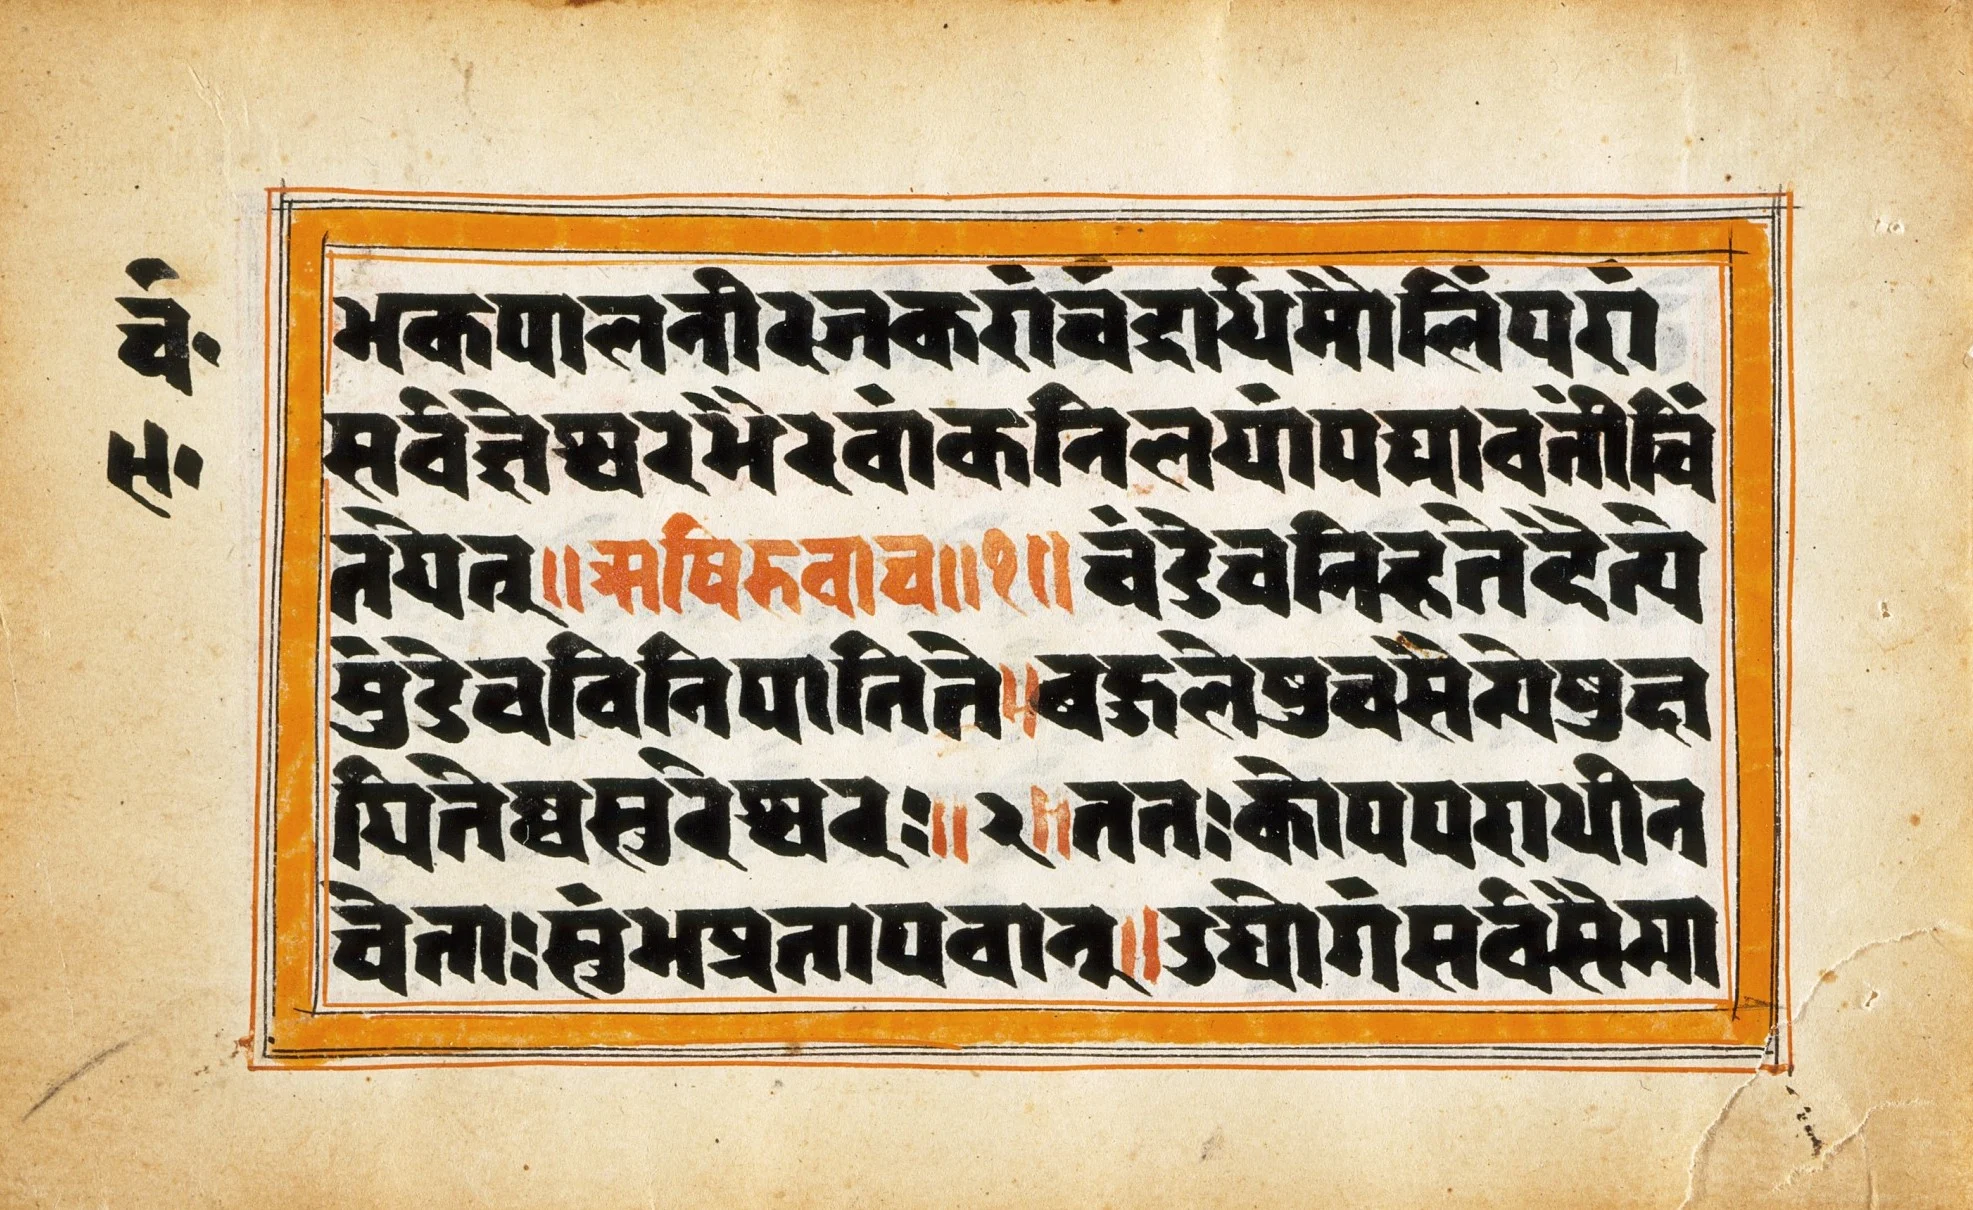 चं॰
स॰
भकपालनीरजकरांचंद्रार्धमौलिंपरां
सर्वज्ञेश्वरभैरवांकनिलयांपद्मावतींचिं
तयेत्॥ऋषिरुवाच॥१॥चंडेचनिहतेदैत्ये
मुंडेचविनिपातिते॥बहुलेषुचसैन्येषुक्ष
यितेष्वसुरेश्वरः॥२॥ततःकोपपराधीन
चेताःशुंभप्रतापवान्॥उद्योगंसर्वसैन्या